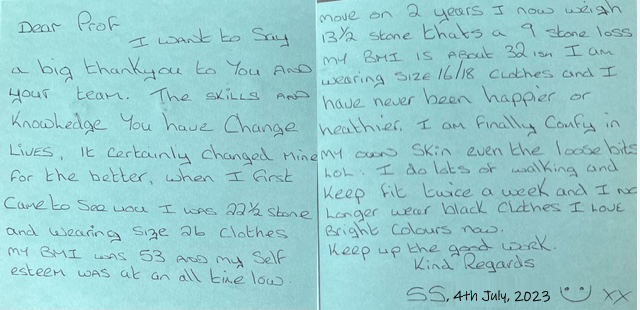 Dear Prof
I want to Say
a big thankyou to You AND
your team. The SKILLS AND
Knowhedge You have Change
LIVES, It certainly changed Mine
for the better, when I first
Came to See you I was 22½ stone
and wearing Size 26 clothes
my BMI was 53 AND my Self
esteem was at an all time low.
move on 2 years I now weigh
13½ stone thats a 9 stone loss
my BMI is About 32 ish I am
wearing Size 16/18 clothes and I
have never been happier or
healthier. I am finally Comfy in
my own Skin even the loose bits
LOL. I do lots of walking and
Keep fit twice a week and I no
Longer wear black Clothes I LOVE
Bright Colours now.
Keep up the good work.
Kind Regards
SS, 4th July, 2023 ☺ XX